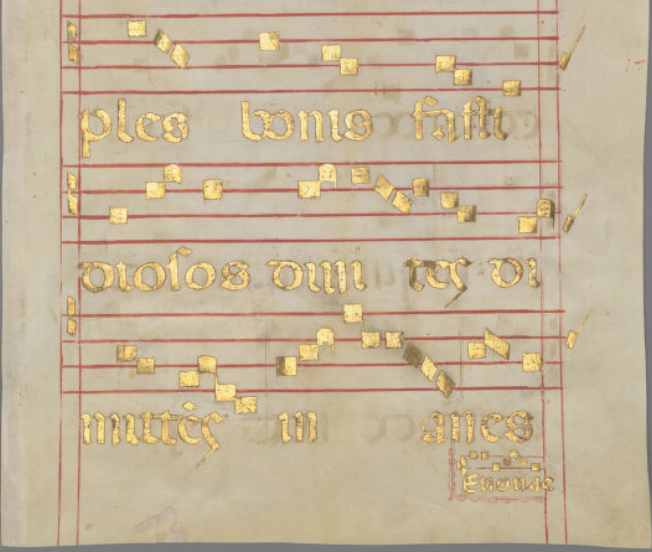 ples bonis fasti
diosos divi tes di
mittēs in anes
Euouae